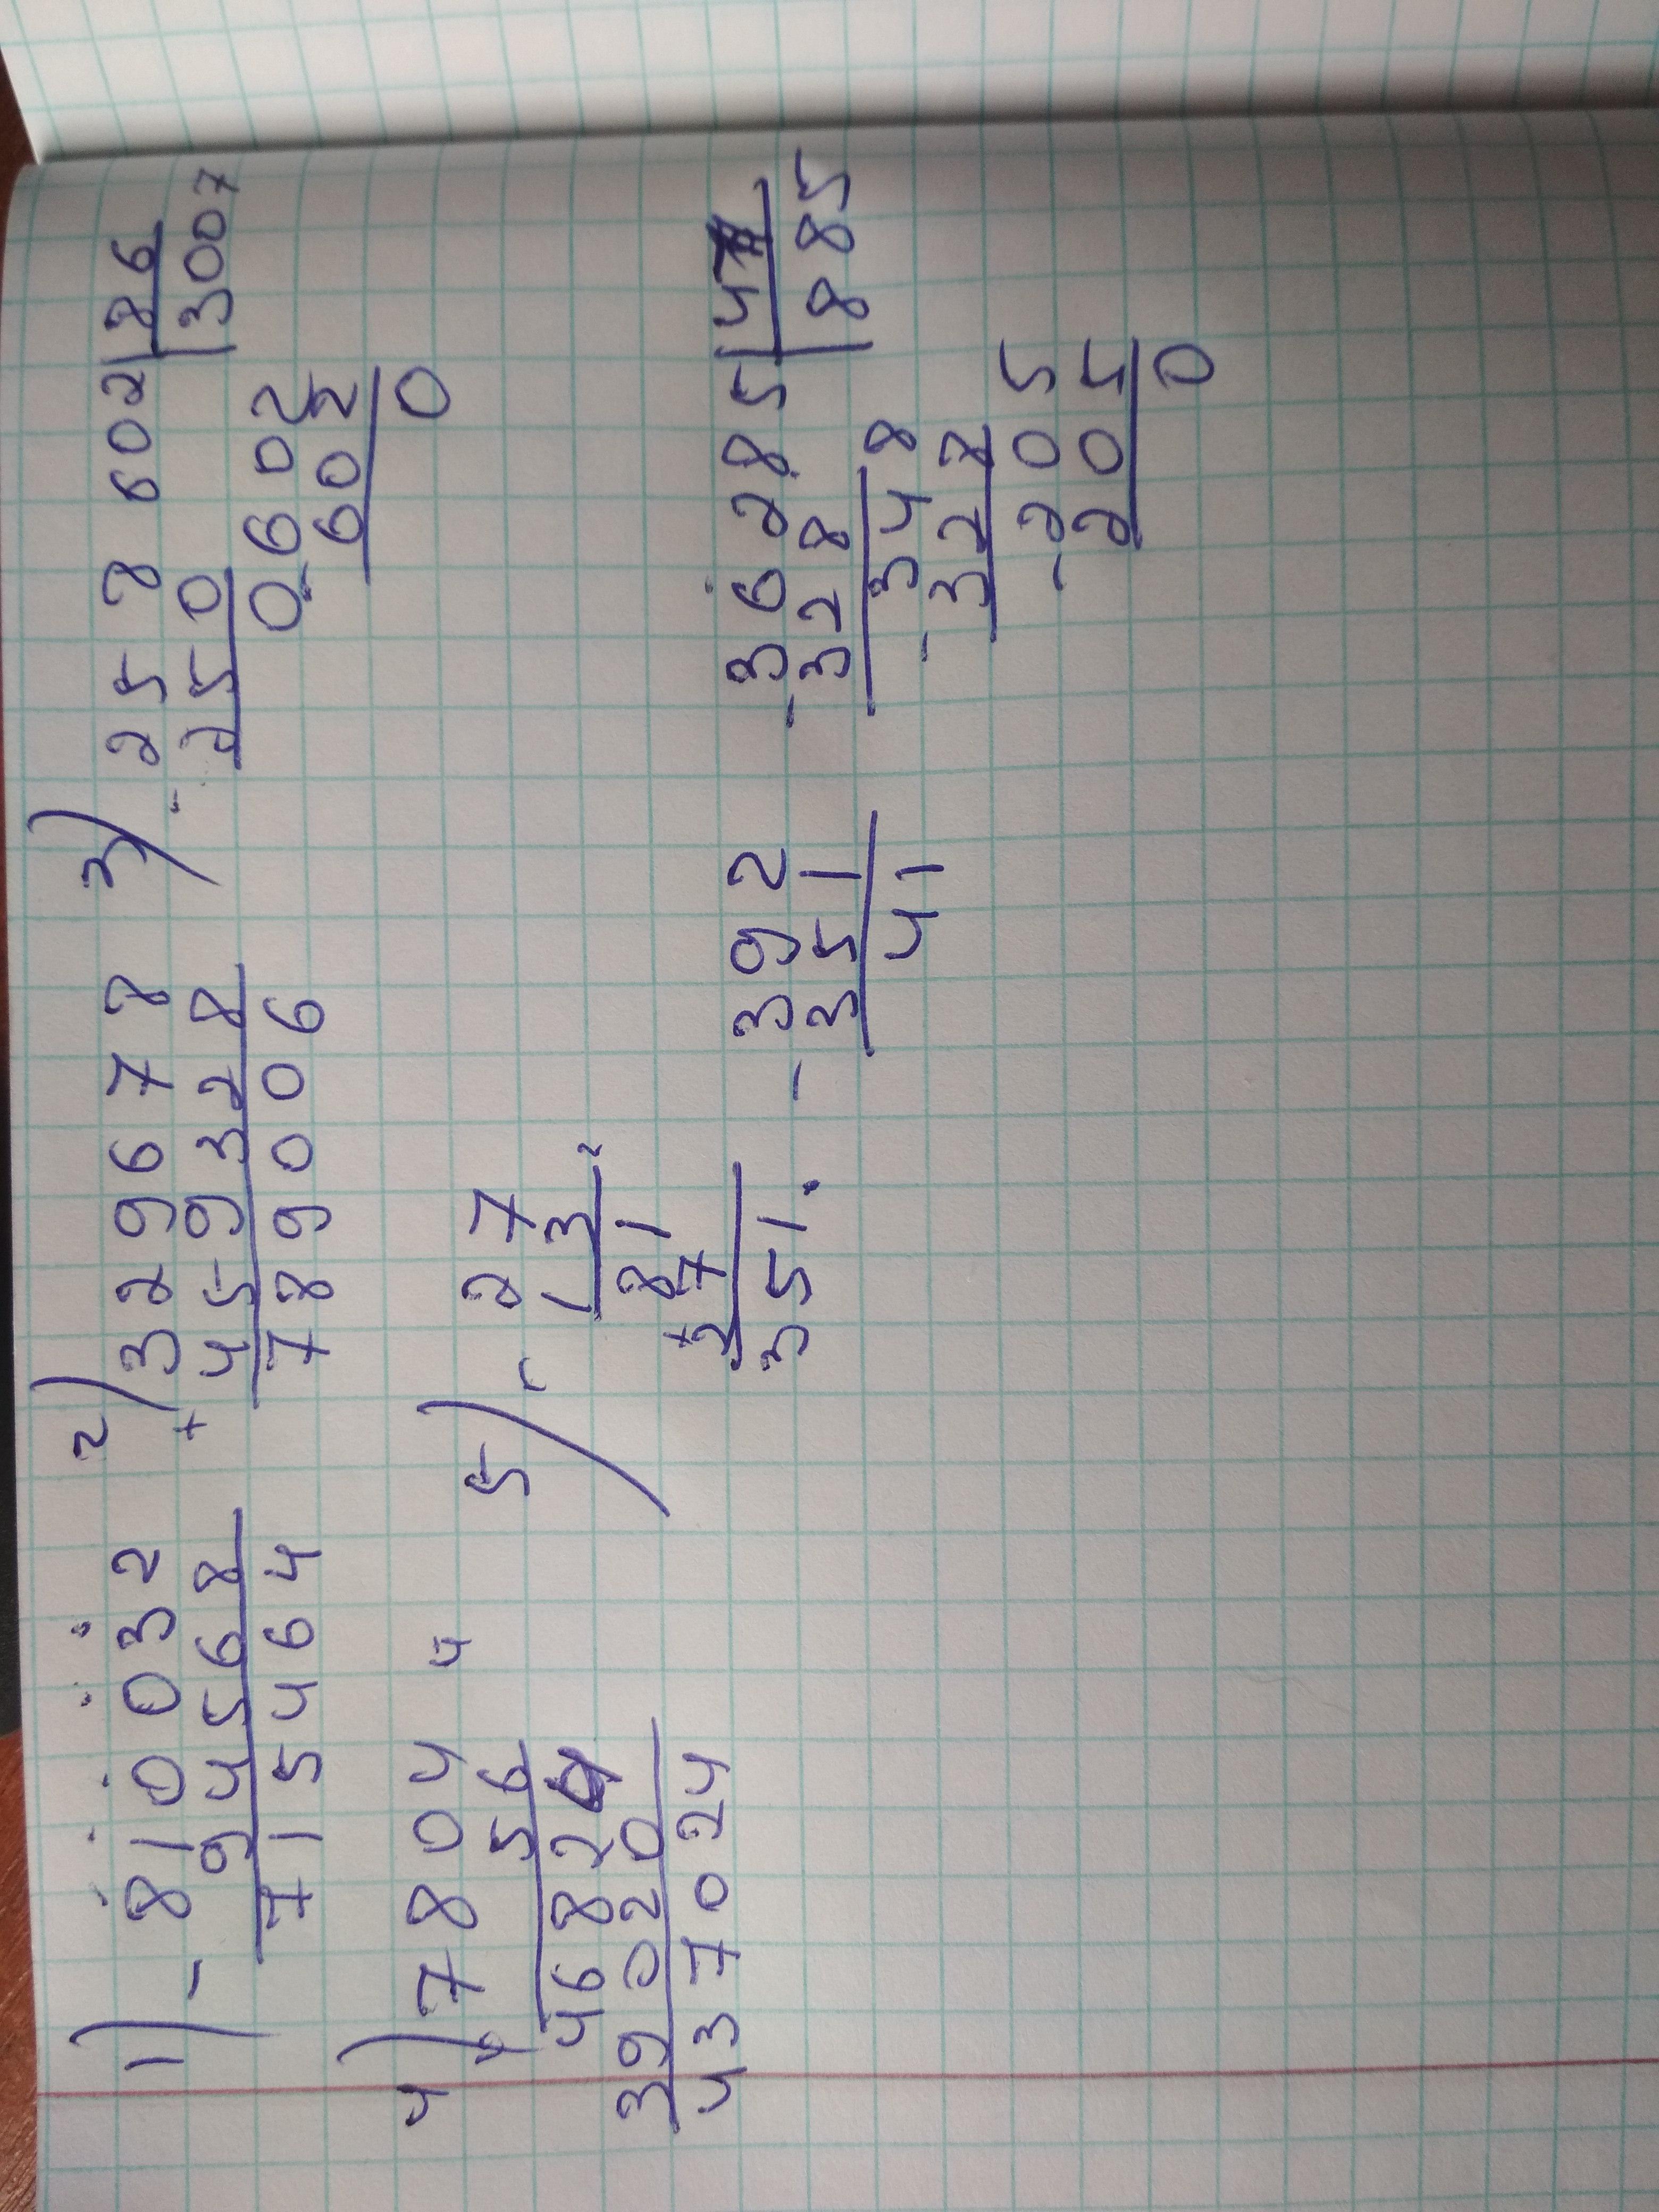 1)
- 810032
94568
715464
2)
+ 329678
459328
789006
3)
- 258 602 | 86
250 | 3007
0602
- 602
0
4)
7804
56
46824
39020
437024
4
5)
27
13
81
+ 27
351.
- 392
351
41
- 36285
328 | 885
- 348
328
- 205
205
0